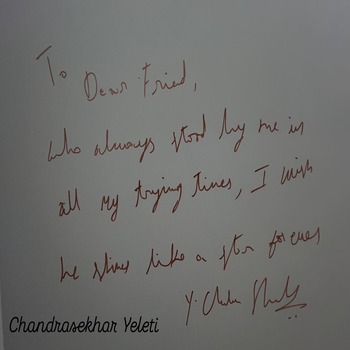 To
Dear Friend,
who always stood by me in
all my trying times, I wish
he shines like a star forever
Y. Chandra Shekhar
Chandrasekhar Yeleti